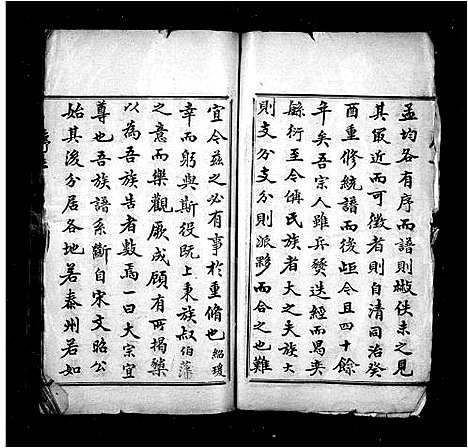 孟均各有序而譜則散佚未之見
其最近而可徵者則自清同治癸
酉重修統譜而後距今且四十餘
年矣吾宗人雖兵燹迭經而禺筴
縣衍至今偁民族者大之夫族大
則支分支分則派夥而合之也難
宜今茲之必有事於重脩也紹璦
幸而躬與斯役既上秉族叔伯藻
之意而樂觀厥成顧有所揭櫫
以為吾族告者數焉一曰大宗宜
尊也吾族譜系斷自宋文昭公
始其後分居各地若泰州若如